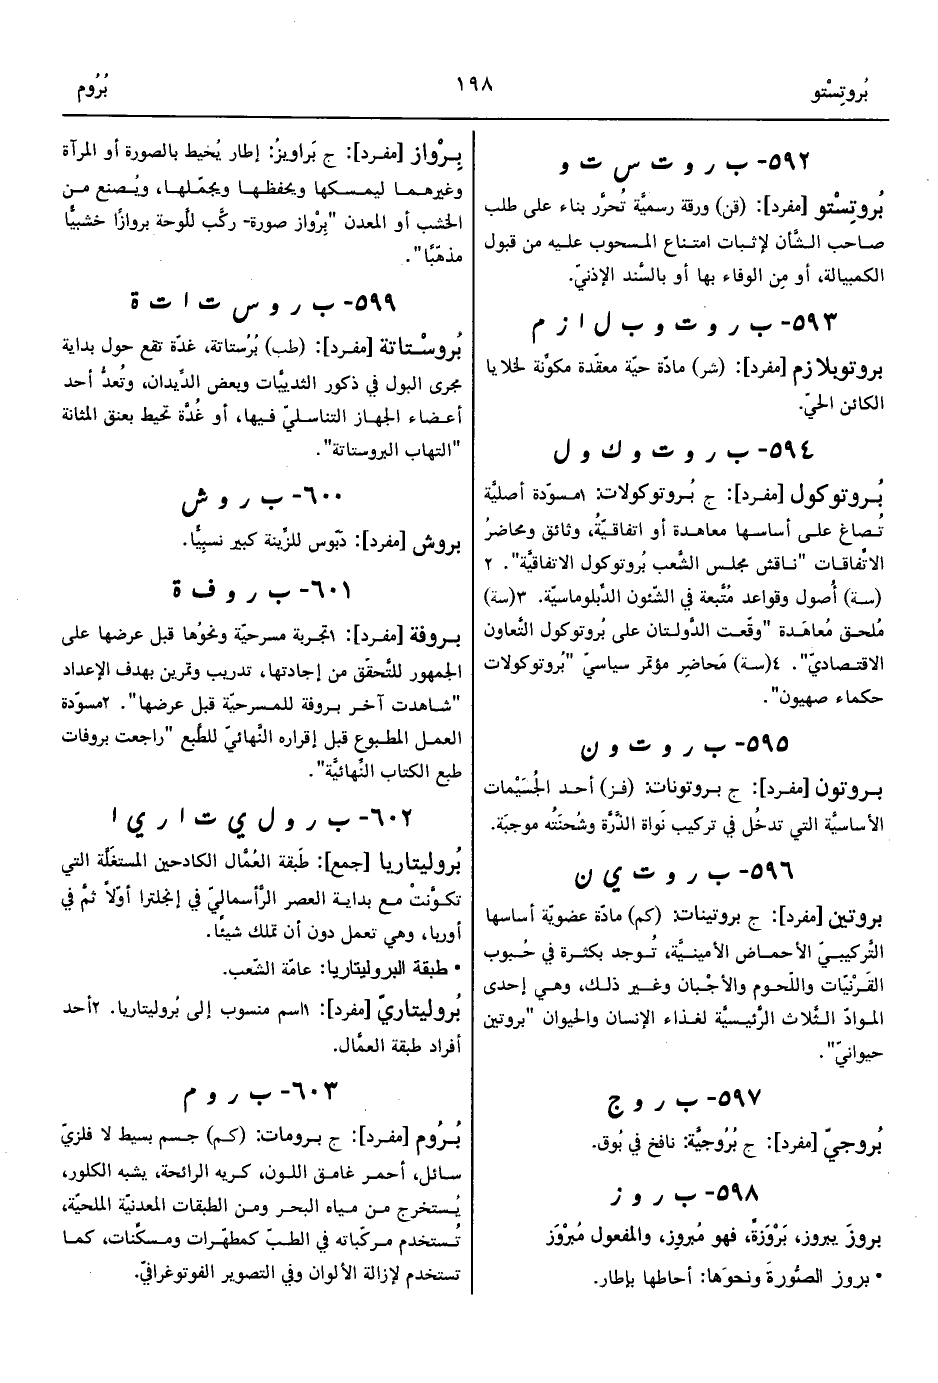 بُروتِسْتو
١٩٨
بُرُوم
٥٩٢- ب ر و ت س ت و
بُروتِستو [مفرد]: (قن) ورقة رسميَّة تُحرَّر بناء على طلب
صاحب الشَّأن لإثبات امتناع المسحوب عليه من قبول
الكمبيالة، أو مِن الوفاء بها أو بالسَّند الإذنيّ.
٥٩٣- ب ر و ت و ب ل ا ز م
بروتوبلازم [مفرد]: (شر) مادّة حيَّة معقَّدة مكوِّنة لخلايا
الكائن الحيّ.
٥٩٤- ب ر و ت و ك و ل
بُروتوكول [مفرد]: ج بُروتوكولات: ١مسوّدة أصليَّة
تُصاغ على أساسها معاهدة أو اتفاقيّةُ، وثائق ومحاضرُ
الاتِّفاقات "ناقش مجلس الشَّعب بُروتوكول الاتفاقيَّة". ٢
(سة) أُصول وقواعد مُتَّبعة في الشّئون الدِّبلوماسيَّة. ٣(سة)
مُلحق مُعاهَدة "وقَّعت الدَّولتان على بُروتوكول التَّعاون
الاقتصاديّ". ٤(سة) مَحاضِر مؤتمر سياسيّ "بُروتوكولات
حكماء صهيون".
٥٩٥- ب ر و ت و ن
بروتون [مفرد]: ج بروتونات: (فز) أحد الجُسَيْمات
الأساسيَّة التي تدخُل في تركيب نَواة الذَّرَّة وشُحنَته موجبَة.
٥٩٦- ب ر و ت ي ن
بروتين [مفرد]: ج بروتينات: (كم) مادّة عضويَّة أساسها
التَّركيبيّ الأحماض الأمينيَّة، تُوجد بكثرة في حُبوب
القَرْنيّات واللّحوم والأجْبان وغير ذلك، وهي إحدى
الموادّ الثَّلاث الرَّئيسيَّة لغذاء الإنسان والحيوان "بروتين
حيوانيّ".
٥٩٧- ب ر و ج
بُروجيّ [مفرد]: ج بُرُوجيَّة: نافخ في بُوق.
٥٩٨- ب ر و ز
بروزَ يبروز، بَرْوَزَةً، فهو مُبروِز، والمفعول مُبرْوَز
• بروز الصُّورةَ ونحوَها: أحاطها بإطار.
بِرْواز [مفرد]: ج بَراويزُ: إطار يُحيط بالصورة أو المرآة
وغيرهما ليمسكها ويحفظها ويجمِّلها، ويُصنع من
الخشب أو المعدن "بِرْواز صورة- ركَّب للَّوحة بروازًا خشبيًّا
مذهّبًا".
٥٩٩- ب ر و س ت ا ت ة
بُروسْتاتة [مفرد]: (طب) بُرُستاتة، غدّة تقع حول بداية
مجرى البول في ذكور الثدييَّات وبعض الدِّيدان، وتُعدُّ أحد
أعضاء الجهاز التناسليّ فيها، أو غُدَّة تحيط بعنق المثانة
"التهاب البروستاتة".
٦٠٠- ب ر و ش
بروش [مفرد]: دبّوس للزِّينة كبير نسبيًّا.
٦٠١- ب ر و ف ة
بروفة [مفرد]: ١تجربة مسرحيّة ونحوُها قبل عرضها على
الجمهور للتَّحقّق من إجادتها، تدريب وتمرين بهدف الإعداد
"شاهدت آخر بروفة للمسرحيّة قبل عرضها". ٢مسوّدة
العمل المطبوع قبل إقراره النَّهائيّ للطَّبع "راجعت بروفات
طبع الكتاب النِّهائيَّة".
٦٠٢- ب ر و ل ي ت ا ر ي ا
بُروليتاريا [جمع]: طَبقة العُمَّال الكادحين المستغَلَّة التي
تكوَّنتْ مع بداية العصر الرَّأسماليّ في إنجلترا أوّلاً ثمَّ في
أوربا، وهي تعمل دون أن تملك شيئًا.
• طبقة البروليتاريا: عامّة الشّعب.
بُروليتاريّ [مفرد]: ١اسم منسوب إلى بُروليتاريا. ٢أحد
أفراد طبقة العمَّال.
٦٠٣- ب ر و م
بُرُوم [مفرد]: ج برومات: (كم) جسم بسيط لا فلزيّ
سائل، أحمر غامق اللون، كريه الرائحة، يشبه الكلور،
يُستخرج من مياه البحر ومن الطبقات المعدنيَّة الملحيَّة،
تُستخدم مركَّباته في الطبّ كمطهِّرات ومسكِّنات، كما
تستخدم لإزالة الألوان وفي التصوير الفوتوغرافيّ.